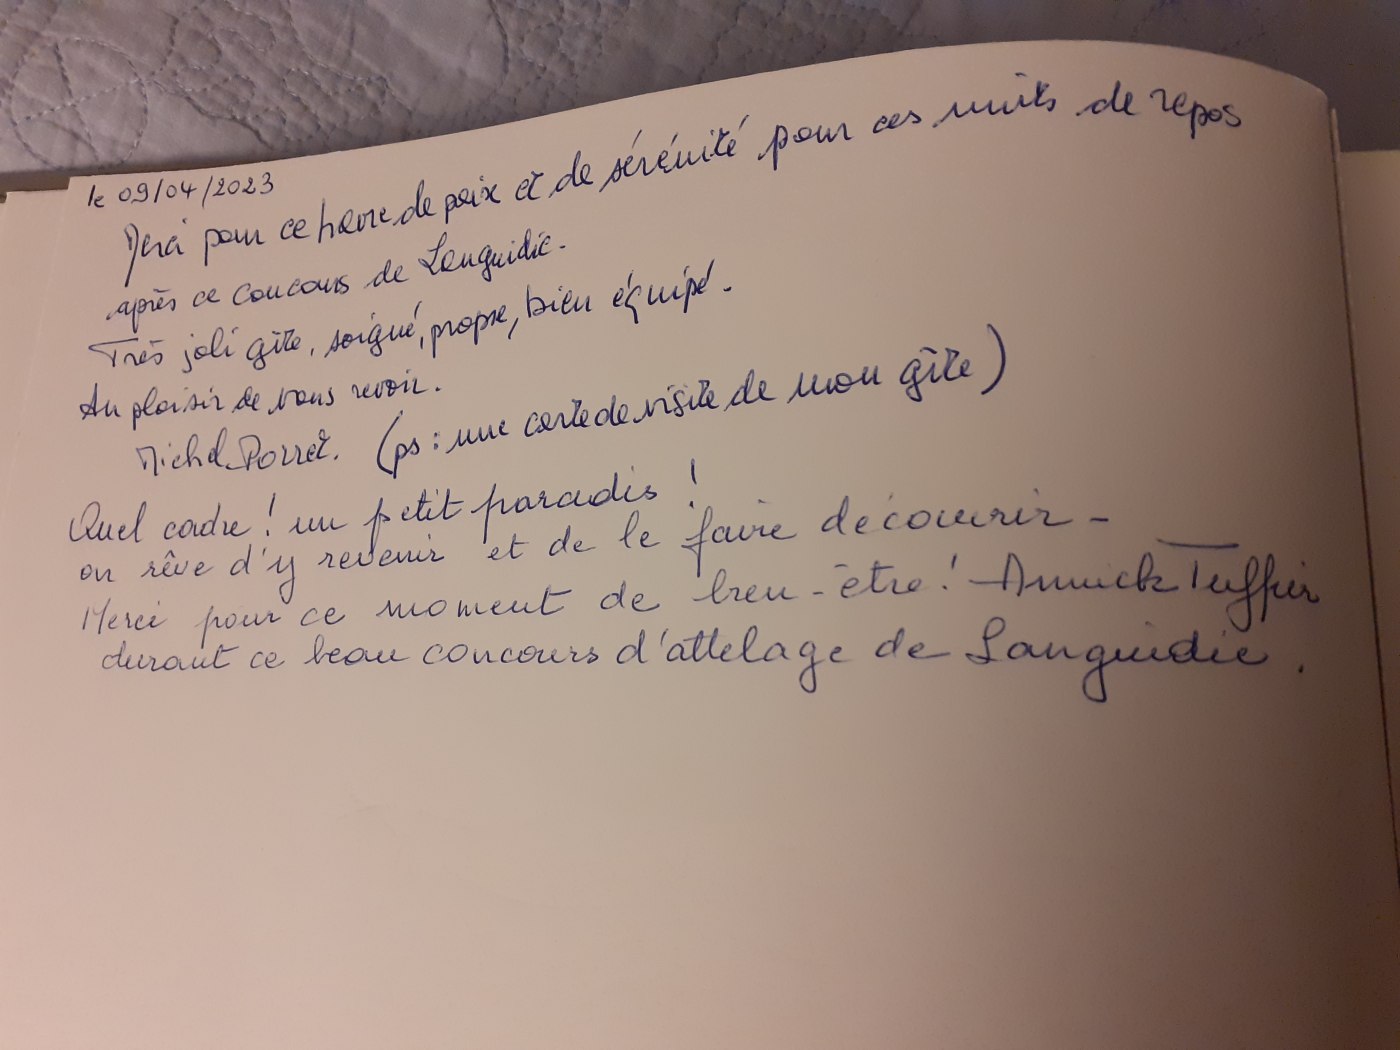 le 09/04/2023
Merci pour ce havre de paix et de sérénité pour ces nuits de repos
après ce concours de Languidic.
Très joli gîte, soigné, propre, bien équipé.
Au plaisir de vous revoir.
Michel Porret. (ps : une carte de visite de mon gîte)
Quel cadre ! un petit paradis !
on rêve d'y revenir et de le faire découvrir -
Merci pour ce moment de bien-être ! Annick Tuffier
durant ce beau concours d'attelage de Languidic.